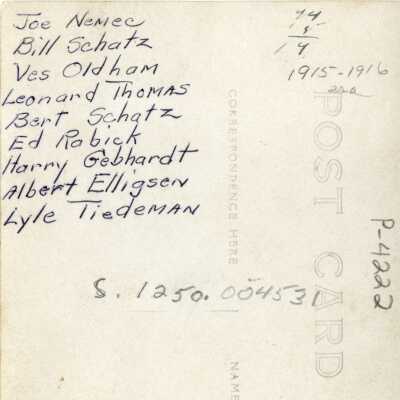 Joe Nemec
Bill Schatz
Ves Oldham
Leonard Thomas
Bert Schatz
Ed Rabick
Harry Gebhardt
Albert Elligsen
Lyle Tiedeman
1915-1916
CORRESPONDENCE HERE
POST CARD
P-4222
S. 1250. 004531
NAME